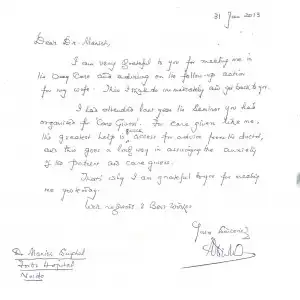 31 Jan 2013
Dear Dr. Manish,
I am very grateful to you for meeting me in
the Day Care and advising on the follow-up action
for my wife. This I might do immediately and get back to you.
I had attended last year the Seminar you had
organised for 'Care Givers'. For care givers like me,
the greatest help is quick access for advice from the doctor,
and this goes a long way in assuaging the anxiety
of the patients and care givers.
That's why I am grateful to you for meeting
me yesterday.
With regards & Best Wishes
Yours Sincerely
Dr. Manish Singhal
Fortis Hospital
Noida